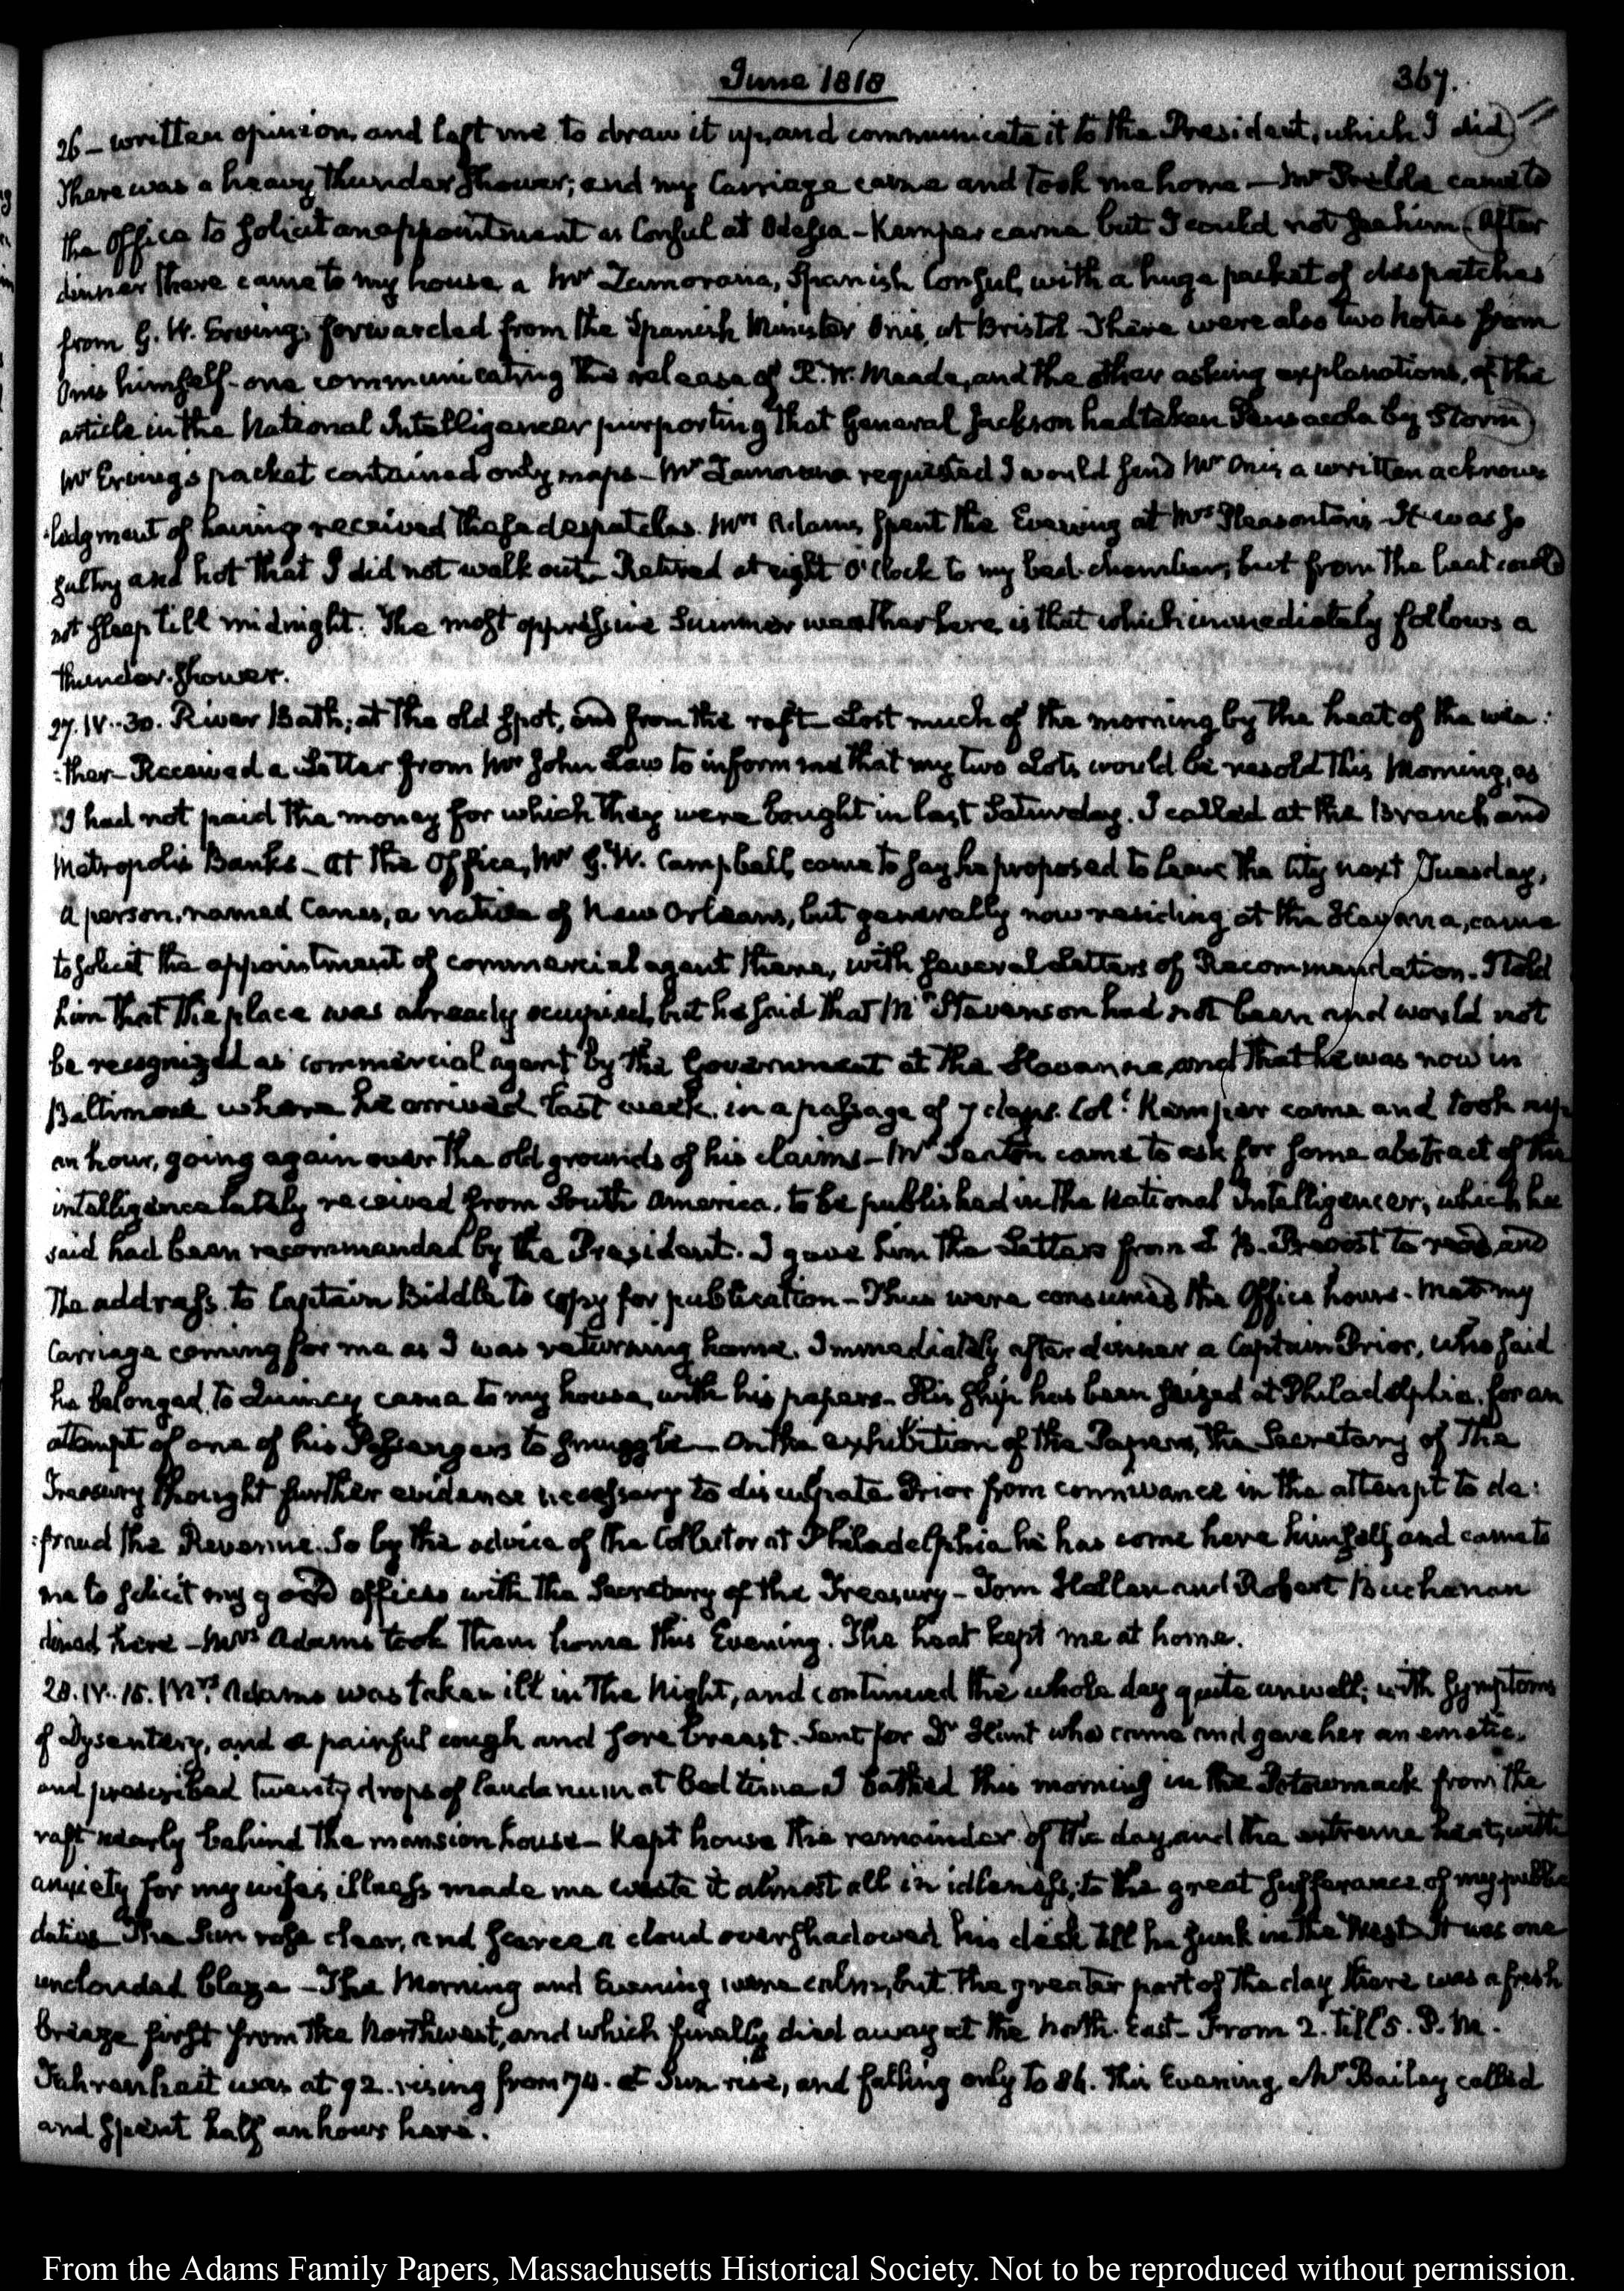 June 1818
367.
26 — written opinion, and left me to draw it up, and communicate it to the President, which I did
There was a heavy thunder shower; and my Carriage came and took me home — Mr came to
the Office to solicit an appointment as Consul at Odessa — Kemper came but I could not see him. After
dinner there came to my house a Mr Zamorana, Spanish Consul, with a huge packet of despatches
from G. W. Erving; forwarded from the Spanish Minister Onis, at Bristol — There were also two notes from
Onis himself — one communicating the release of R. W. Meade, and the other asking explanations, of the
article in the National Intelligencer purporting that General Jackson had taken Pensacola by Storm
Mr Erving's packet contained only maps — Mr Zamorana requested I would send Mr Onis a written acknow-
-ledgment of having received these despatches. Mrs Adams spent the Evening at Mrs Pleasonton's — It was so
sultry and hot that I did not walk out — Retired at eight O'Clock to my bed-chamber; but from the heat could
not sleep till midnight. The most oppressive Summer weather here, is that which immediately follows a
thunder-shower.
27. IV..30. River Bath; at the old spot, and from the raft — Lost much of the morning by the heat of the wea:
:ther — Received a Letter from Mr John Law to inform me that my two Lots would be resold this Morning, as
I had not paid the money for which they were bought in last Saturday. I called at the Branch and
Metropolis Banks — At the Office, Mr G. W. Campbell came to say he proposed to leave the City next Tuesday,
a person, named Canes, a native of New Orleans, but generally now residing at the Havanna, came
to solicit the appointment of commercial agent there, with several Letters of Recommendation. I told
him that the place was already occupied, but he said that Mr Stevenson had not been and would not
be recognized as commercial agent by the Government at the Havanna, and that he was now in
Baltimore where he arrived last week in a passage of 7 days. Coll Kemper came and took up
an hour, going again over the old grounds of his claims — Mr Seaton came to ask for some abstract of the
intelligence lately received from South America, to be published in the National Intelligencer; which he
said had been recommended by the President. I gave him the Letters from J. B. Prevost to read, and
the address to Captain Biddle to copy for publication — Thus were consumed the Office hours. Met my
Carriage coming for me as I was returning home. Immediately after dinner a Captain Prior, who said
he belonged to Quincy came to my house, with his papers — His ship has been seized at Philadelphia, for an
attempt of one of his Passengers to smuggle — On the exhibition of the Papers, the Secretary of the
Treasury thought further evidence necessary to disculpate Prior from connivance in the attempt to de:
:fraud the Revenue. So by the advice of the Collector at Philadelphia he has come here himself, and came to
me to solicit my good offices with the Secretary of the Treasury — Tom Hellen and Robert Buchanan
dined here — Mrs Adams took them home this Evening. The heat kept me at home.
28. IV..15. Mrs Adams was taken ill in the Night, and continued the whole day quite unwell; with symptoms
of Dysentery, and a painful cough and sore breast. Sent for Dr Hunt who came and gave her an emetic,
and prescribed twenty drops of laudanum at bed time — I bathed this morning in the Potowmack from the
raft nearly behind the mansion house — Kept house the remainder of the day, and the extreme heat, with
anxiety for my wife's illness made me waste it almost all in idleness; to the great sufferance of my public
duties — The Sun rose clear, and scarce a cloud overshadowed his disk till he sunk in the West. It was one
unclouded blaze — The Morning and Evening were calm, but the greater part of the day there was a fresh
breeze first from the Northwest, and which finally died away at the North-East — From 2. till 5. P.M.
Fahrenheit was at 92. rising from 74. at Sun rise, and falling only to 86. This Evening Mr Bailey called
and spent half an hour here.
From the Adams Family Papers, Massachusetts Historical Society. Not to be reproduced without permission.